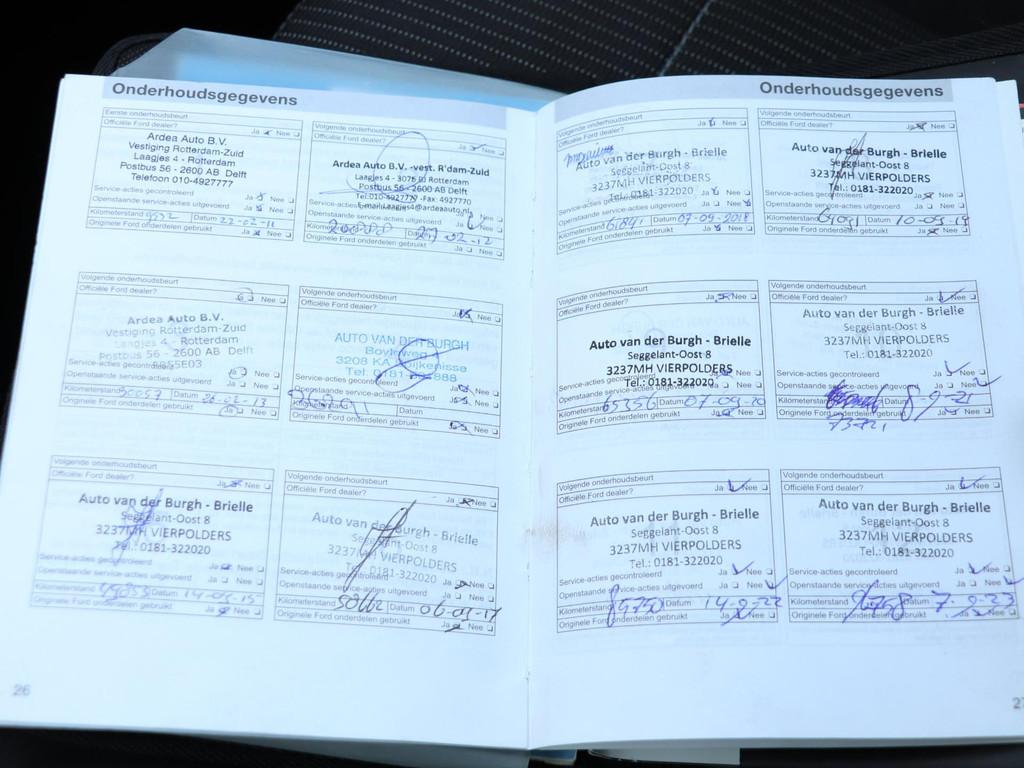 Onderhoudsgegevens
Eerste onderhoudsbeurt
Officiële Ford dealer? Ja Nee
Ardea Auto B.V.
Vestiging Rotterdam-Zuid
Laagjes 4 - Rotterdam
Postbus 56 - 2600 AB Delft
Telefoon 010-4927777
Service-acties gecontroleerd Ja Nee
Openstaande service-acties uitgevoerd Ja Nee
Kilometerstand Datum 22-02-11
Originele Ford onderdelen gebruikt Ja Nee
Volgende onderhoudsbeurt
Officiële Ford dealer? Ja Nee
Ardea Auto B.V. -vest. R'dam-Zuid
Laagjes 4 - 3076 BJ Rotterdam
Postbus 56 - 2600 AB Delft
Tel.010-4927777 -Fax: 4927770
E-mail:Laagjes4@ardeaauto.nl
Service-acties Ja Nee
Openstaande service-acties uitgevoerd Ja Nee
02-12
Originele Ford onderdelen gebruikt Ja Nee
Volgende onderhoudsbeurt
Officiële Ford dealer? Nee
Ardea Auto B.V.
Vestiging Rotterdam-Zuid
Laagjes 4 - Rotterdam
Postbus 56 - 2600 AB Delft
Service-acties gecontroleerd Nee
Openstaande service-acties uitgevoerd Ja Nee
Kilometerstand 30057 Datum 26-02-13
Originele Ford onderdelen gebruikt Ja Nee
Volgende onderhoudsbeurt
Officiële Ford dealer? Nee
AUTO VAN DER BURGH
3208 KA Spijkenisse
Service-acties gecontroleerd Ja Nee
Openstaande service-acties uitgevoerd Ja Nee
Kilometerstand Datum
Originele Ford onderdelen gebruikt Nee
Volgende onderhoudsbeurt
Officiële Ford dealer? Ja Nee
Auto van der Burgh - Brielle
Seggelant-Oost 8
3237MH VIERPOLDERS
Tel.: 0181-322020
Service-acties gecontroleerd Ja Nee
Openstaande service-acties uitgevoerd Ja Nee
Kilometerstand Datum 14-09-15
Originele Ford onderdelen gebruikt Ja Nee
Volgende onderhoudsbeurt
Officiële Ford dealer? Ja Nee
Auto van der Burgh - Brielle
Seggelant-Oost 8
3237MH VIERPOLDERS
Tel.: 0181-322020
Service-acties gecontroleerd Ja Nee
Openstaande service-acties uitgevoerd Ja Nee
Kilometerstand Datum 06-09-17
Originele Ford onderdelen gebruikt Ja Nee
26
Onderhoudsgegevens
Volgende onderhoudsbeurt
Officiële Ford dealer? Ja Nee
Auto van der Burgh - Brielle
Seggelant-Oost 8
3237MH VIERPOLDERS
Tel.: 0181-322020
Service-acties gecontroleerd Ja Nee
Openstaande service-acties uitgevoerd Ja Nee
Kilometerstand Datum 07-09-2018
Originele Ford onderdelen gebruikt Ja Nee
Volgende onderhoudsbeurt
Officiële Ford dealer? Ja Nee
Auto van der Burgh - Brielle
Seggelant-Oost 8
3237MH VIERPOLDERS
Tel.: 0181-322020
Service-acties gecontroleerd Ja Nee
Openstaande service-acties uitgevoerd Ja Nee
Kilometerstand Datum 10-09-19
Originele Ford onderdelen gebruikt Ja Nee
Volgende onderhoudsbeurt
Officiële Ford dealer? Ja Nee
Auto van der Burgh - Brielle
Seggelant-Oost 8
3237MH VIERPOLDERS
Tel.: 0181-322020
Service-acties gecontroleerd Nee
Openstaande service-acties uitgevoerd Ja Nee
Kilometerstand 65356 Datum 07-09-20
Originele Ford onderdelen gebruikt Ja Nee
Volgende onderhoudsbeurt
Officiële Ford dealer? Ja Nee
Auto van der Burgh - Brielle
Seggelant-Oost 8
3237MH VIERPOLDERS
Tel.: 0181-322020
Service-acties gecontroleerd Ja Nee
Openstaande service-acties uitgevoerd Ja Nee
Kilometerstand Datum 8-9-21
Originele Ford onderdelen gebruikt Ja Nee
Volgende onderhoudsbeurt
Officiële Ford dealer? Ja Nee
Auto van der Burgh - Brielle
Seggelant-Oost 8
3237MH VIERPOLDERS
Tel.: 0181-322020
Service-acties gecontroleerd Ja Nee
Openstaande service-acties uitgevoerd Ja Nee
Kilometerstand 84750 Datum 14-9-22
Originele Ford onderdelen gebruikt Ja Nee
Volgende onderhoudsbeurt
Officiële Ford dealer? Ja Nee
Auto van der Burgh - Brielle
Seggelant-Oost 8
3237MH VIERPOLDERS
Tel.: 0181-322020
Service-acties gecontroleerd Ja Nee
Openstaande service-acties uitgevoerd Ja Nee
Kilometerstand Datum 7-9-23
Originele Ford onderdelen gebruikt Ja Nee